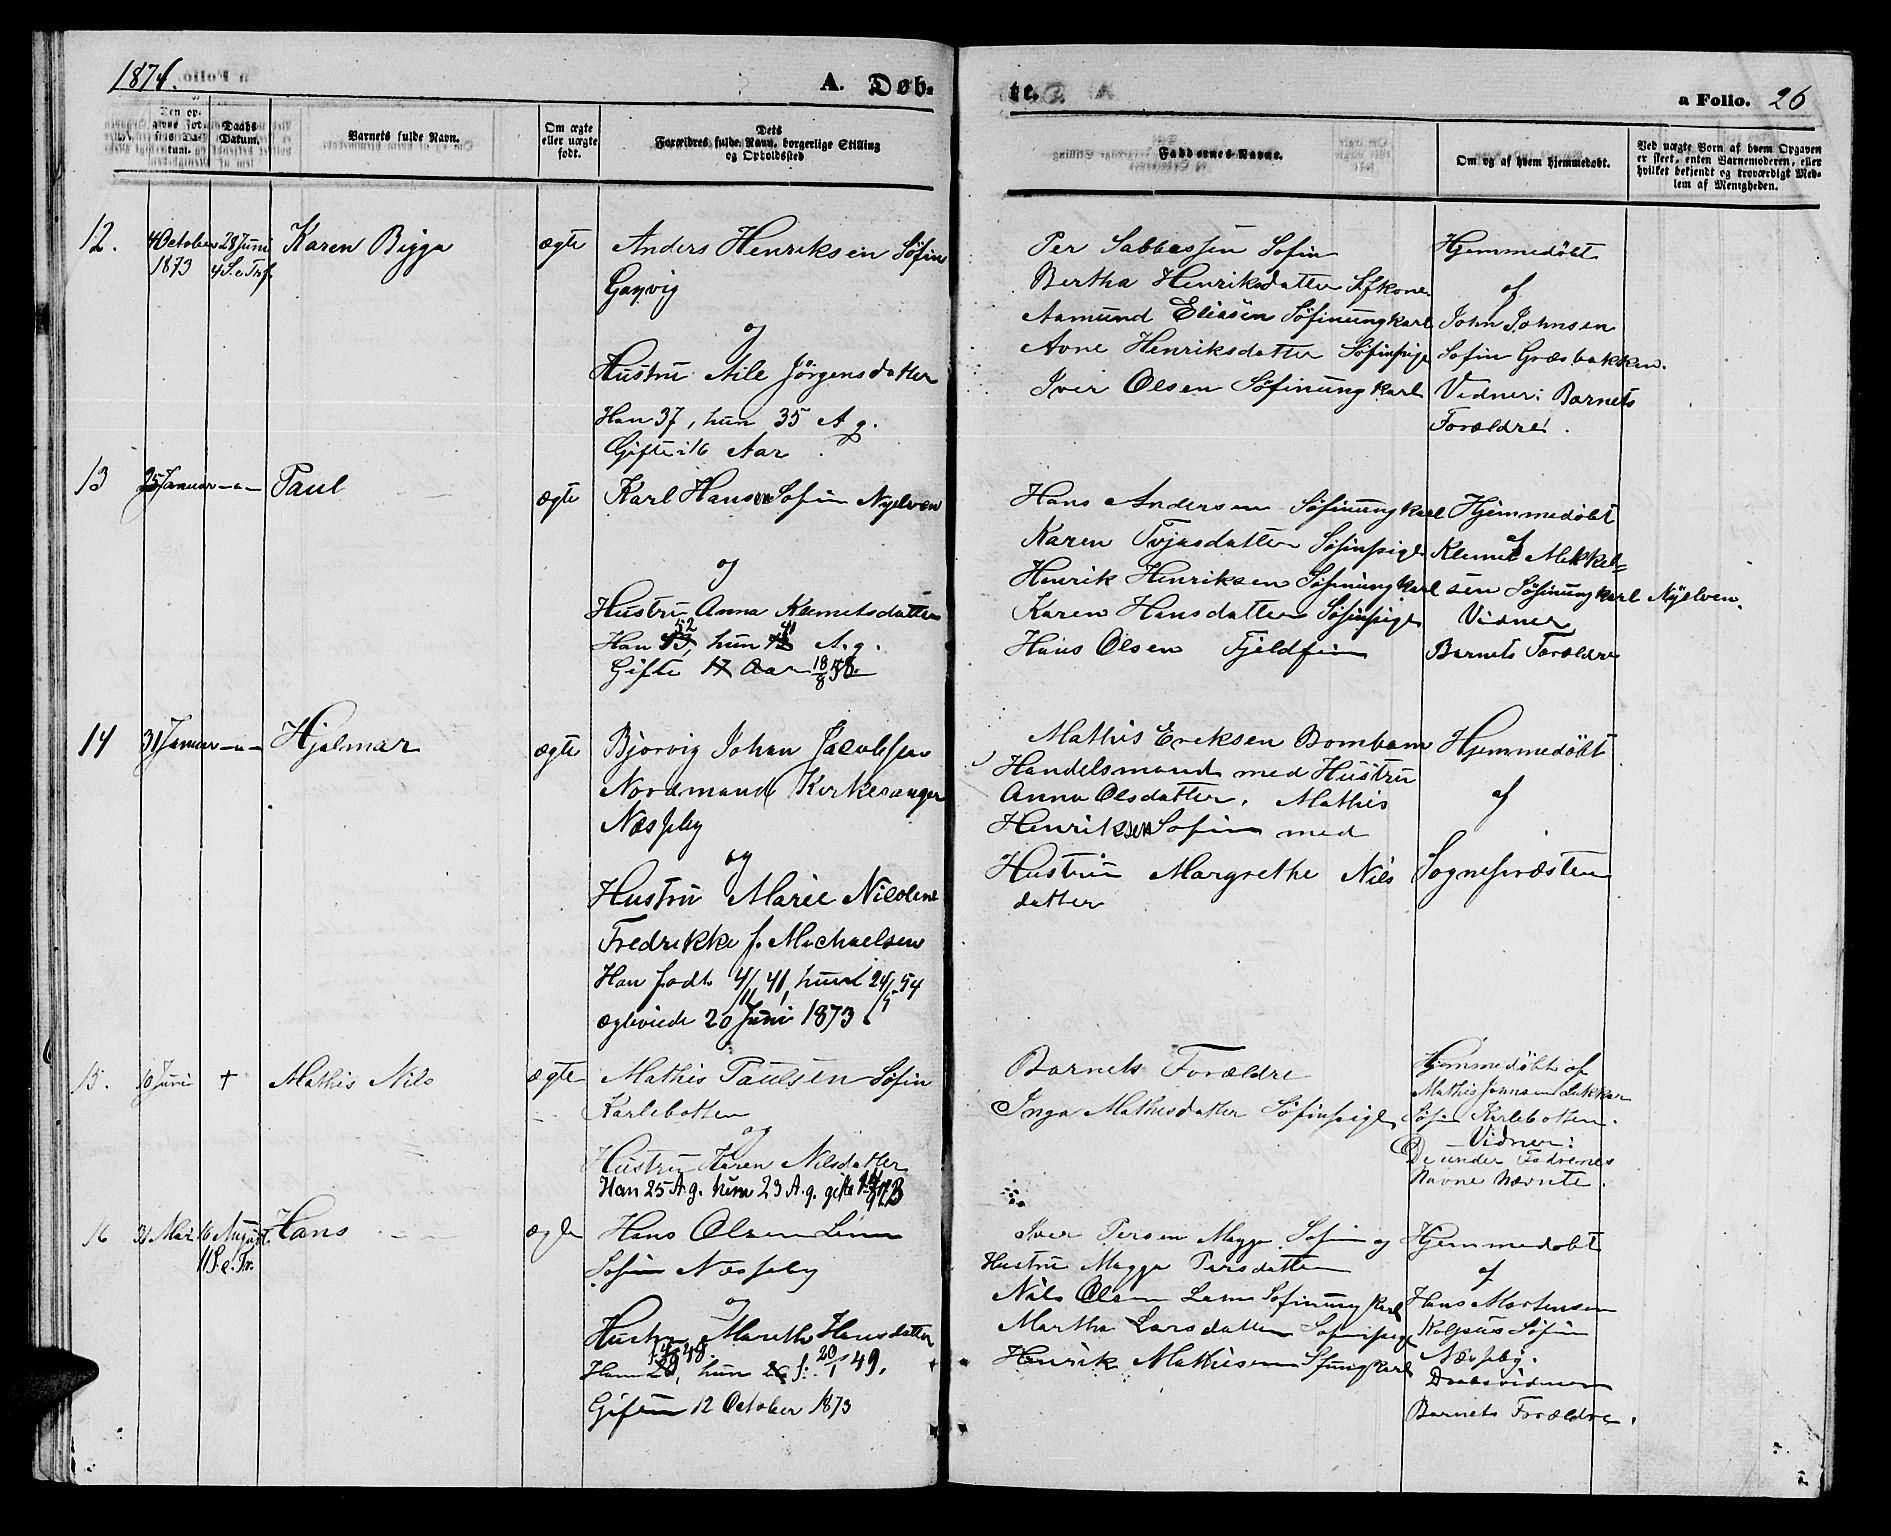 1874.
A. Døb-
te.
a Folio. 26
Den opgivne Fødsels Datum.
Daabs Datum.
Barnets fulde Navn.
Om ægte eller uægte født.
Dets Forældres fulde Navn, borgerlige Stilling og Opholdssted
Faddernes Navne.
Om og af hvem hjemmedøbt.
Ved uægte Børn af hvem Opgaven er skeet, enten Barnemoderen, eller hvilket bekjendt og troværdigt Medlem af Menigheden.
12.
4 October 1873
28 Juni 4 S. e. Tr.
Karen Bigga
ægte
Anders Henriksen Søfin
og
Hustru Aile Jørgensdatter
Han 37, hun 35 A. g.
Gifte i 16 Aar
Per Sabbassen Sofin
Bertha Henriksdatter Sfkone
Aamund Eliasen Søfinungkarl
Avne Henriksdatter Søfinpige
Iver Olsen Søfinungkarl
Hjemmedøbt
af
John Johnsen
Sofin Græsbakken.
Vidner: Barnets
Forældre.
13
25 Januar
-"-
Paul
ægte
Karl Hansen Sofin Nyelven
og
Hustru Anna Klemetsdatter
Han 52, hun 41 A. g.
Gifte 17 Aar 18/8 58.
Hans Andersen Søfinungkarl
Karen Tvjasdatter Søfinpige
Henrik Henriksen Søfinungkarl
Karen Hansdatter Søfinpige
Hans Olsen Fjeldfin
Hjemmedøbt
af
Klemet Mikkel-
sen Søfinungkarl Nyelven.
Vidner
Barnets Forældre
14
31 Januar
-"-
Hjalmar
ægte
Bjorvig Johan Jacobssen
Nordmand Kirkesanger
Næsseby
og
Hustru Marie Nicoline
Fredrikke f. Michaelsen
Han født 4/11 41, hun 24/5 54
ægteviede 20 Juni 1873.
Mathis Eriksen Bomban
Handelsmand med Hustru
Anna Olsdatter. Mathis
Henriksen Sofin med
Hustru Margrethe Nils
datter
Hjemmedøbt
af
Sognepræsten
15.
10 Juni
†
Mathis Nils
ægte
Mathis Paulsen Søfin
Karlebotten
og
Hustru Karen Nilsdatter
Han 25 A. g. hun 23 A. g. gifte
Barnets Forældre
Inga Mathisdatter Søfinpige
Hjemmedøbt af
Mathis Johnsen Lukkar
Søfin Karlebotten.
Vidner:
De under Fadrenes
Navne nævnte.
16
31 Mai
16 August. 11 S. e. Tr.
Hans
ægte
Hans Olsen
Sofin Næsseby
og
Hustru Mareth Hansdatter
Han 48, hun f. 20/1 49.
Giften 12 October 1873
Iver Persen Magga Sofin og
Hustru Magga Persdatter
Nils Olsen Sofinungkarl
Martha Larsdatter Sofinpige
Henrik Mathisen Sfungkarl
Hjemmedøbt
af
Hans Mortensen
Kolpus Søfin
Næsseby.
Daabsvidner
Barnets Forældre.